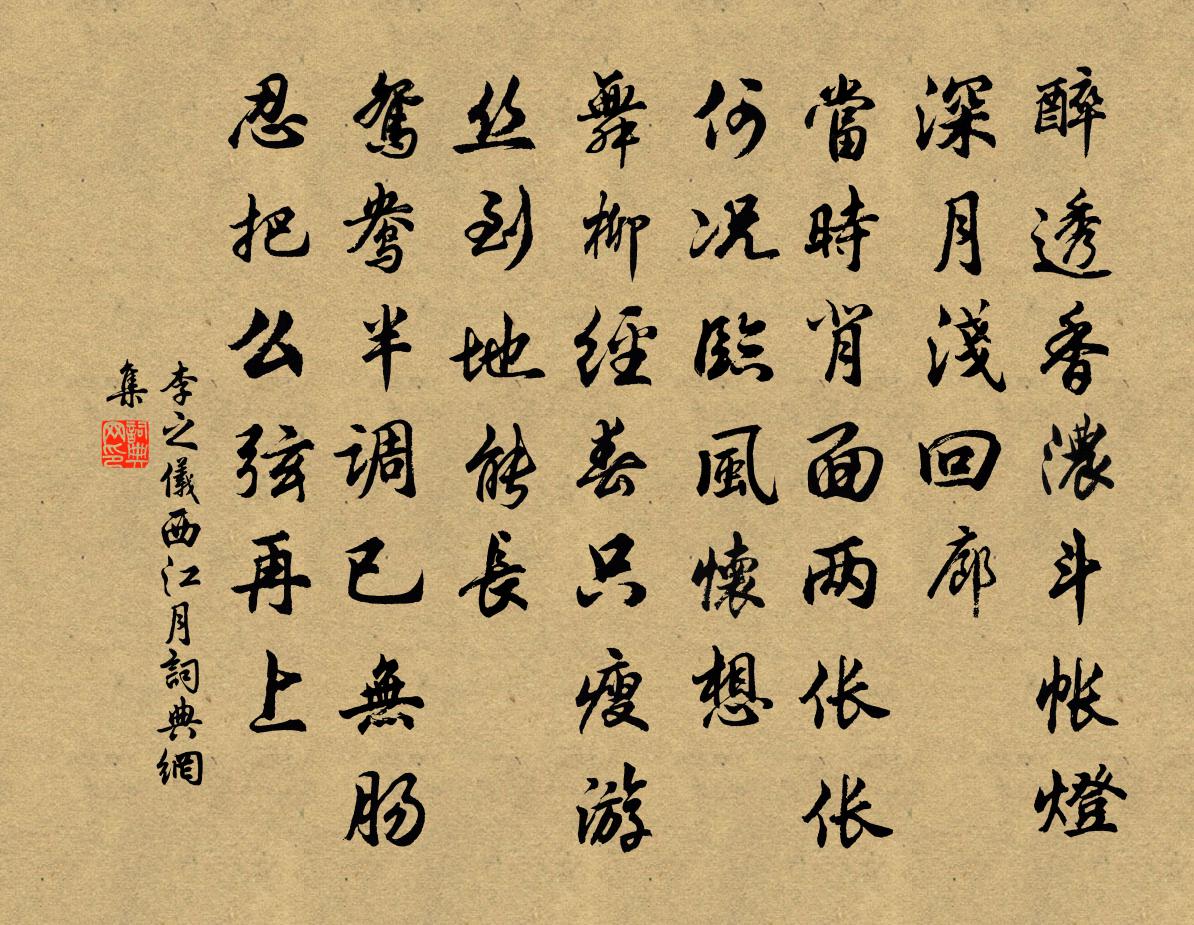 醉透香濃斗帐燈
深月淺回廊
當時背面两伥伥
何况臨風懷想
舞柳經春只瘦游
丝到地能長
鴛鴦半調已無肠
忍把么弦再上
李之儀西江月詞典網
集
詞典
网印